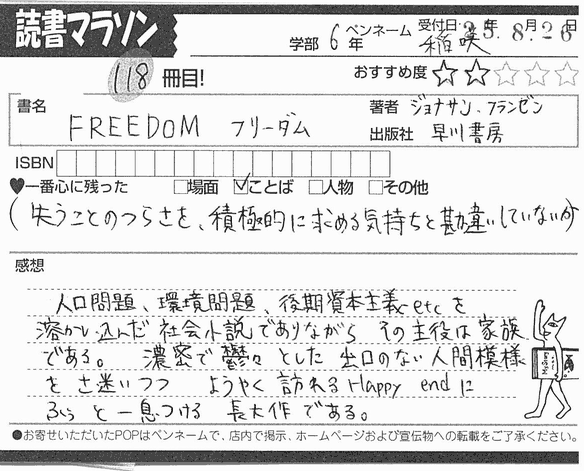 読書マラソン
学部 6年 ペンネーム 稲咲 受付日:25年 8月26日
118 冊目!
おすすめ度 ★★☆☆☆
書名 FREEDOM フリーダム
著者 ジョナサン・フランゼン
出版社 早川書房
ISBN
♥一番心に残った □場面 ☑ことば □人物 □その他
(失うことのつらさを、積極的に求める気持ちと勘違いしていないか)
感想
人口問題、環境問題、後期資本主義 etc を
溶かし込んだ社会小説でありながら その主役は家族
である。 濃密で鬱々とした 出口のない人間模様
を さ迷いつつ ようやく訪れる Happy end に
ふっと一息つける 長大作である。
●お寄せいただいたPOPはペンネームで、店内で掲示、ホームページおよび宣伝物への転載をご了承ください。